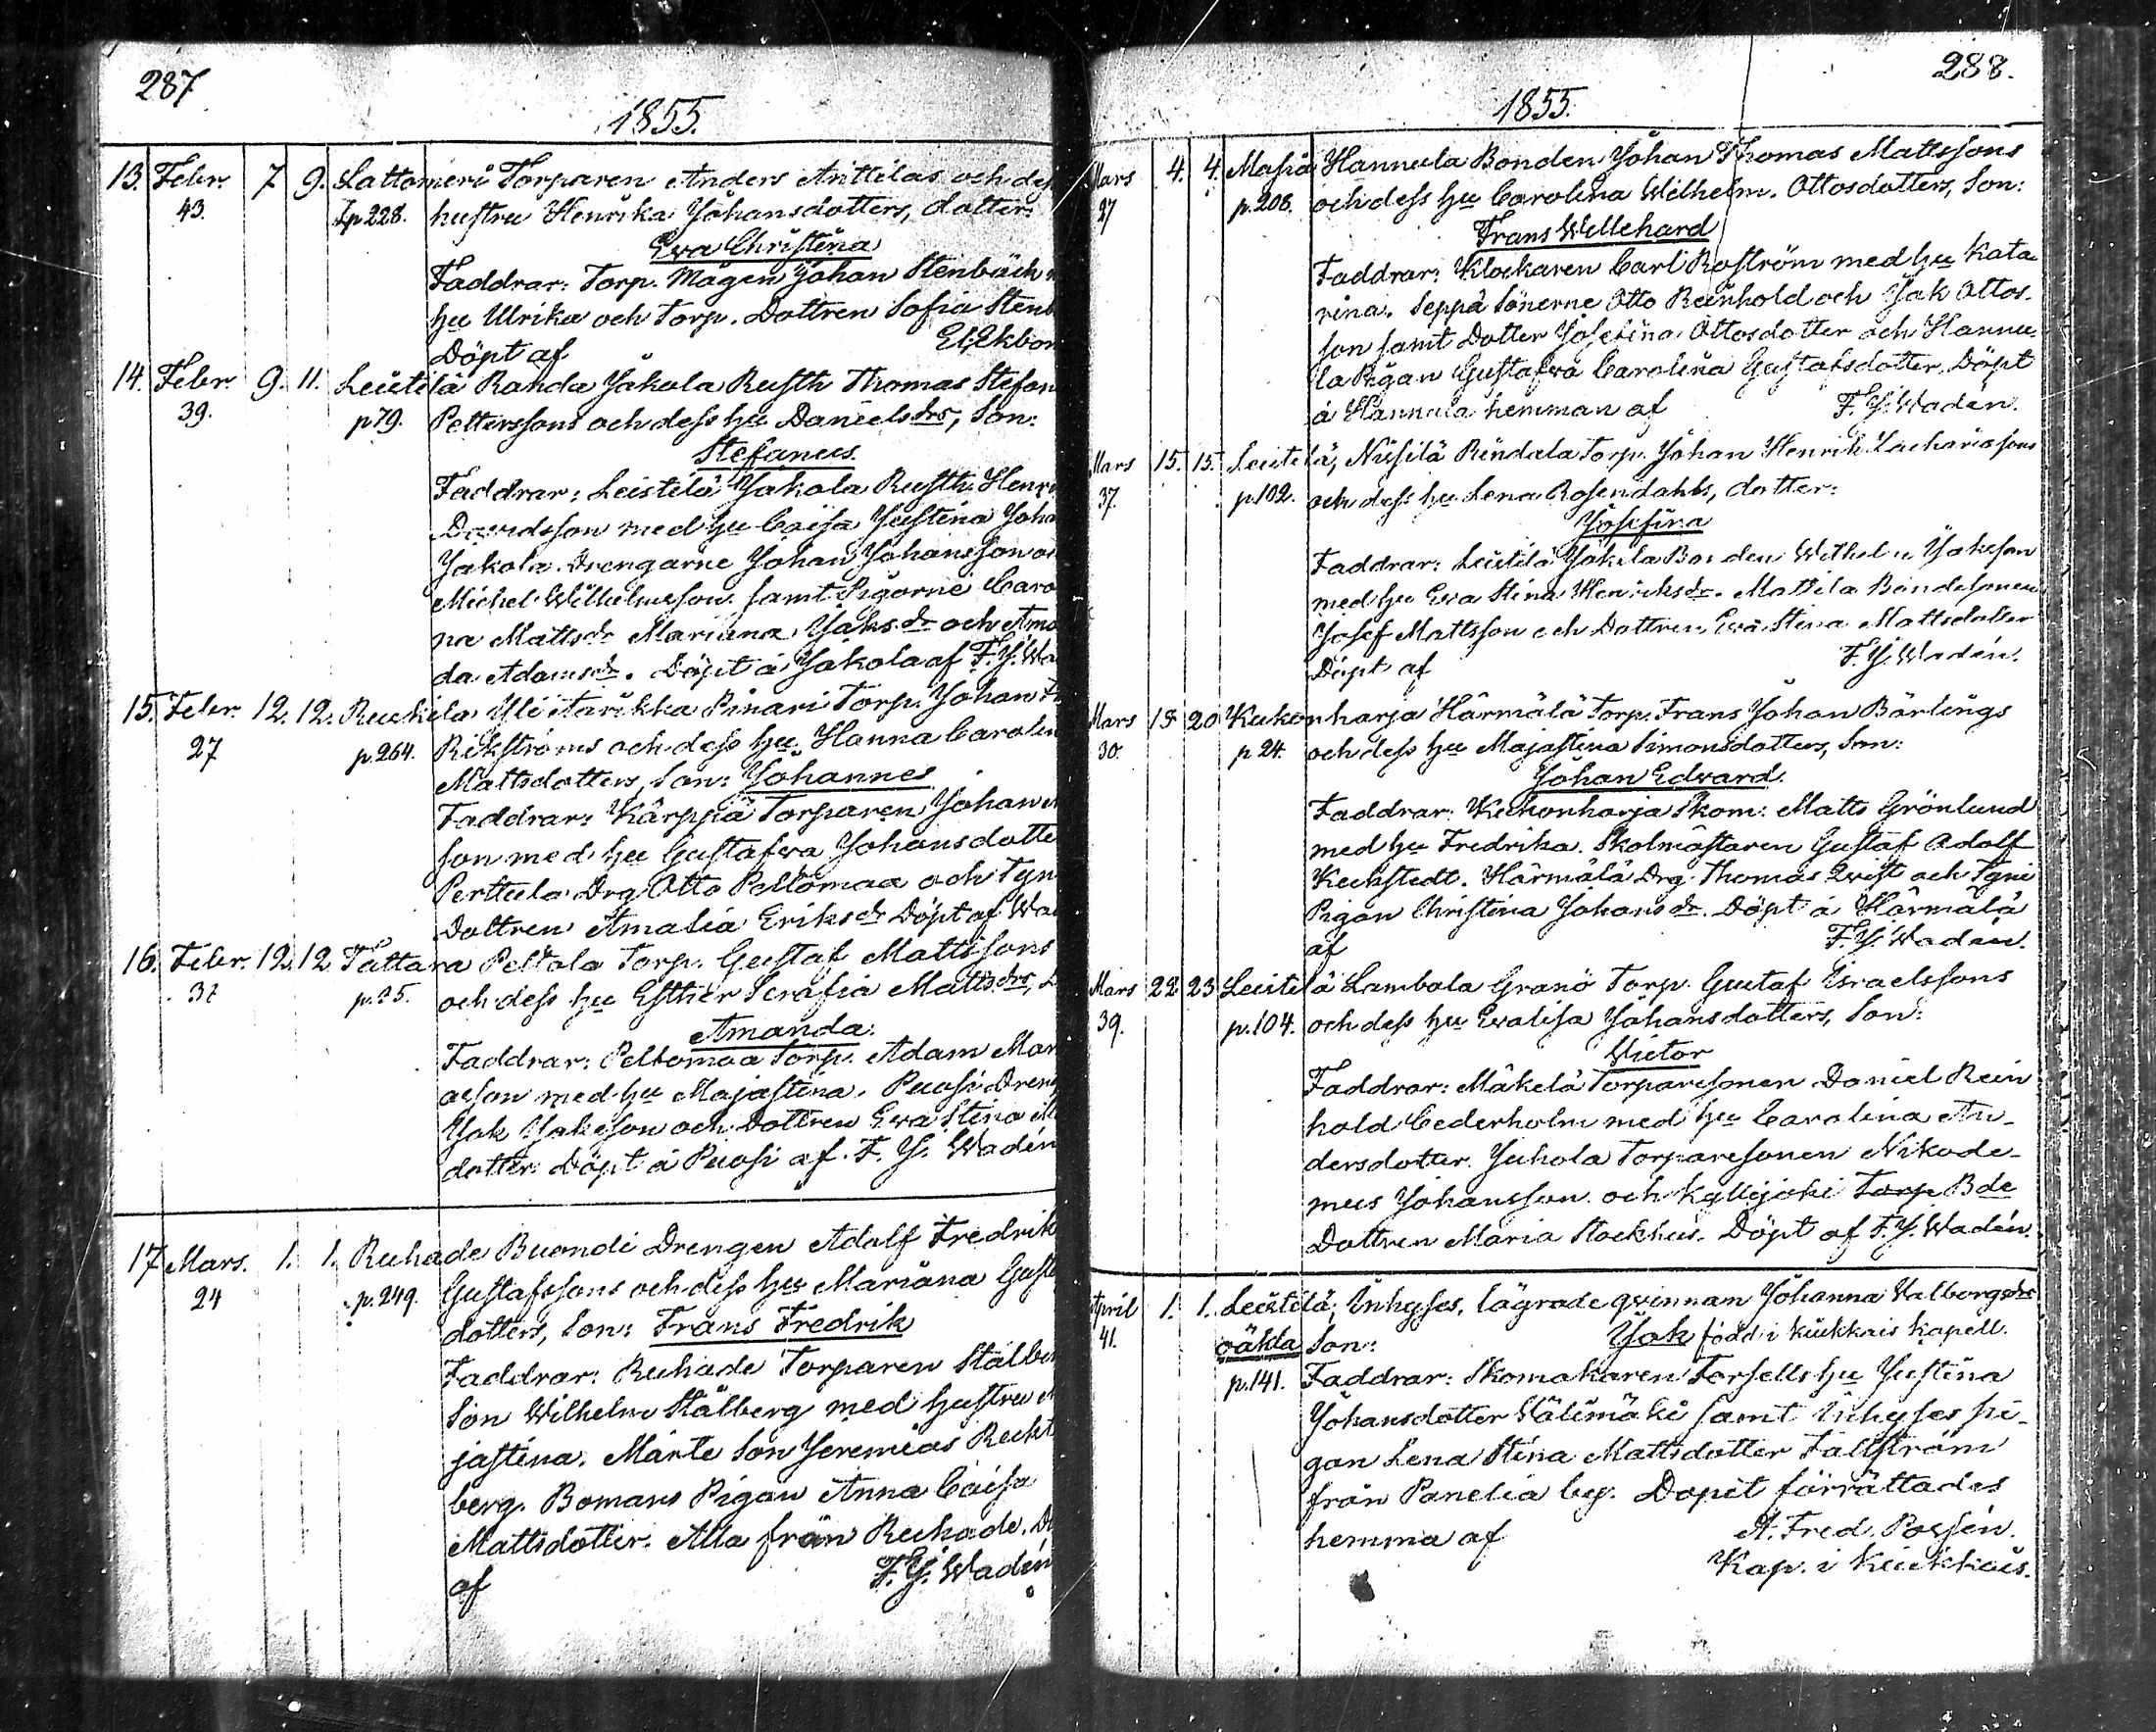 287
1855.
13. Febr. 7 9. Lattomeri Torparen Anders Anttilas och de
43. p 228. hustru Henrika Johansdotters, dotter:
Eva Christina
Faddrar: Torp. Mågen Johan Stenbäck
hu Ulrika och Torp. Dottren Sofia Sten
Döpt af Ekbom
14. Febr. 9. 11. Leistilä Randa Jakola Rusth Thomas Stefan
39. p 79. Petterssons och dess hu Daniels drs, Son:
Stefanus.
Faddrar: Leistilä Jakola Rusth. Henri
Davidsson med hu Caisa Justina Joha
Jakola. Drengarne Johan Johansson o
Michel Wilhelmsson samt Pigorne Caro
na Mattsdr Mariana Jaks.dr och Ama
da Adamsdr. Döpt å Jakola af F. J. Wa
15. Febr. 12. 12. Ruskila Yli Tarikka Pinari Torp. Johan F
27 p. 264. Rikströms och dess hu Hanna Carolin
Mattsdotters, Son: Johannes
Faddrar: Kärppä Torparen Johan
son med hu Gustafva Johansdotte
Perttula Drg Otto Peltomaa och Tyn
Dottren Amalia Eriks dr Döpt af Wa
16. Febr. 12. 12 Tattara Peltola Torp. Gustaf Mattssons
37 p. 35. och dess hu Esther Serafia Matts.drs,
Amanda.
Faddrar: Peltomaa Torp. Adam Mar
asson med hu Majastina. Puosi Dreng
Jak Jaksson och Dottren Eva Stina M
dotter. Döpt å Puosi af F. J. Wadén
17 Mars. 1. 1. Ruhade Buondi Drengen Adolf Fredrik
24 p. 249. Gustafssons och dess hu Mariana Gust
dotters, Son: Frans Fredrik
Faddrar: Ruhade Torparen Stålber
Son Wilhelm Stålberg med hustru
jastina. Märte Son Jeremias Rickt
berg. Bomans Pigan Anna Caisa
Mattsdotter. Alla från Ruhade. D
af F. J. Wadén
288.
1855.
Mars 4. 4. Masia Hannula Bonden Johan Thomas Mattssons
27 p. 208. och dess hu Carolina Wilhelm. Ottosdotters, Son:
Frans Willehard
Faddrar: Klockaren Carl Roström med hu Kata
rina. Seppä Sönerne Otto Reinhold och Jak Ottos-
son samt Dotter Josefina Ottosdotter och Hannu-
la Pigan Gustafva Carolina Gustafsdotter. Döpt
å Hannula hemman af F. J. Wadén.
Mars 15. 15. Leistilä, Niisilä Rindala Torp. Johan Henrik Zachariassons
37. p. 102. och dess hu Lena Rosendahls, dotter:
Josefina
Faddrar: Leistilä Jakola Bonden Wilhelm Jaksson
med hu Eva Stina Henriksdr. Mattila Bondesonen
Josef Mattsson och Dottren Eva Stina Mattsdotter
Döpt af F. J. Wadén.
Mars 18 20 Kukonharja Härmälä Torp. Frans Johan Bärlings
30. p 24. och dess hu Majastina Simonsdotters, Son:
Johan Edvard.
Faddrar: Kukonharja Skom: Matts Grönlund
med hu Fredrika. Skolmästaren Gustaf Adolf
Keckstedt. Härmälä Drg. Thomas Qvist och Tyni
Pigan Christina Johans dr. Döpt å Härmälä
af F. J. Wadén.
Mars 22 23 Leistilä Lambola Granö Torp. Gustaf Israelssons
39. p. 104. och dess hu Evalisa Johansdotters, Son:
Victor
Faddrar: Mäkelä Torparesonen Daniel Rein
hold Cederholm med hu Carolina An-
dersdotter. Juhola Torparesonen Nikode-
mus Johansson och Kyllijoki Torp Bde
Dottren Maria Stockhus. Döpt af F. J. Wadén.
April 1. 1. Leistilä, Inhyses, lägrade qvinnan Johanna Valborgsdrs
41. oäkta Son: Jak född i Kiukkais Kapell.
p. 141. Faddrar: Skomakaren Forsells hu Justina
Johansdotter Välimäki samt Inhyses pi-
gan Lena Stina Mattsdotter Fallström
från Panelia by. Dopet förrättades
hemma af A. Fred. Possén.
Kap. i Kiukkais.